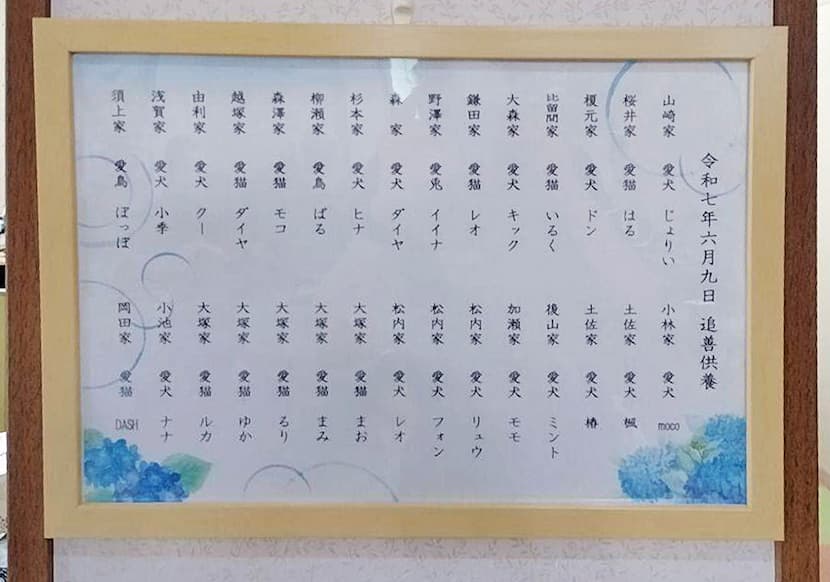 令和七年六月九日 追善供養
山崎家 愛犬 じょりい
桜井家 愛猫 はる
榎元家 愛犬 ドン
比留間家 愛猫 いるく
大森家 愛犬 キック
鎌田家 愛猫 レオ
野澤家 愛兎 イイナ
森 家 愛犬 ダイヤ
杉本家 愛犬 ヒナ
柳瀬家 愛鳥 ぱる
森澤家 愛猫 モコ
越塚家 愛猫 ダイヤ
由利家 愛犬 クー
浅賀家 愛犬 小季
須上家 愛鳥 ぽっぽ
小林家 愛犬 moco
土佐家 愛犬 楓
土佐家 愛犬 椿
後山家 愛犬 ミント
加瀬家 愛犬 モモ
松内家 愛犬 リュウ
松内家 愛犬 フォン
松内家 愛犬 レオ
大塚家 愛猫 まお
大塚家 愛猫 まみ
大塚家 愛猫 るり
大塚家 愛猫 ゆか
大塚家 愛猫 ルカ
小池家 愛犬 ナナ
岡田家 愛猫 DASH